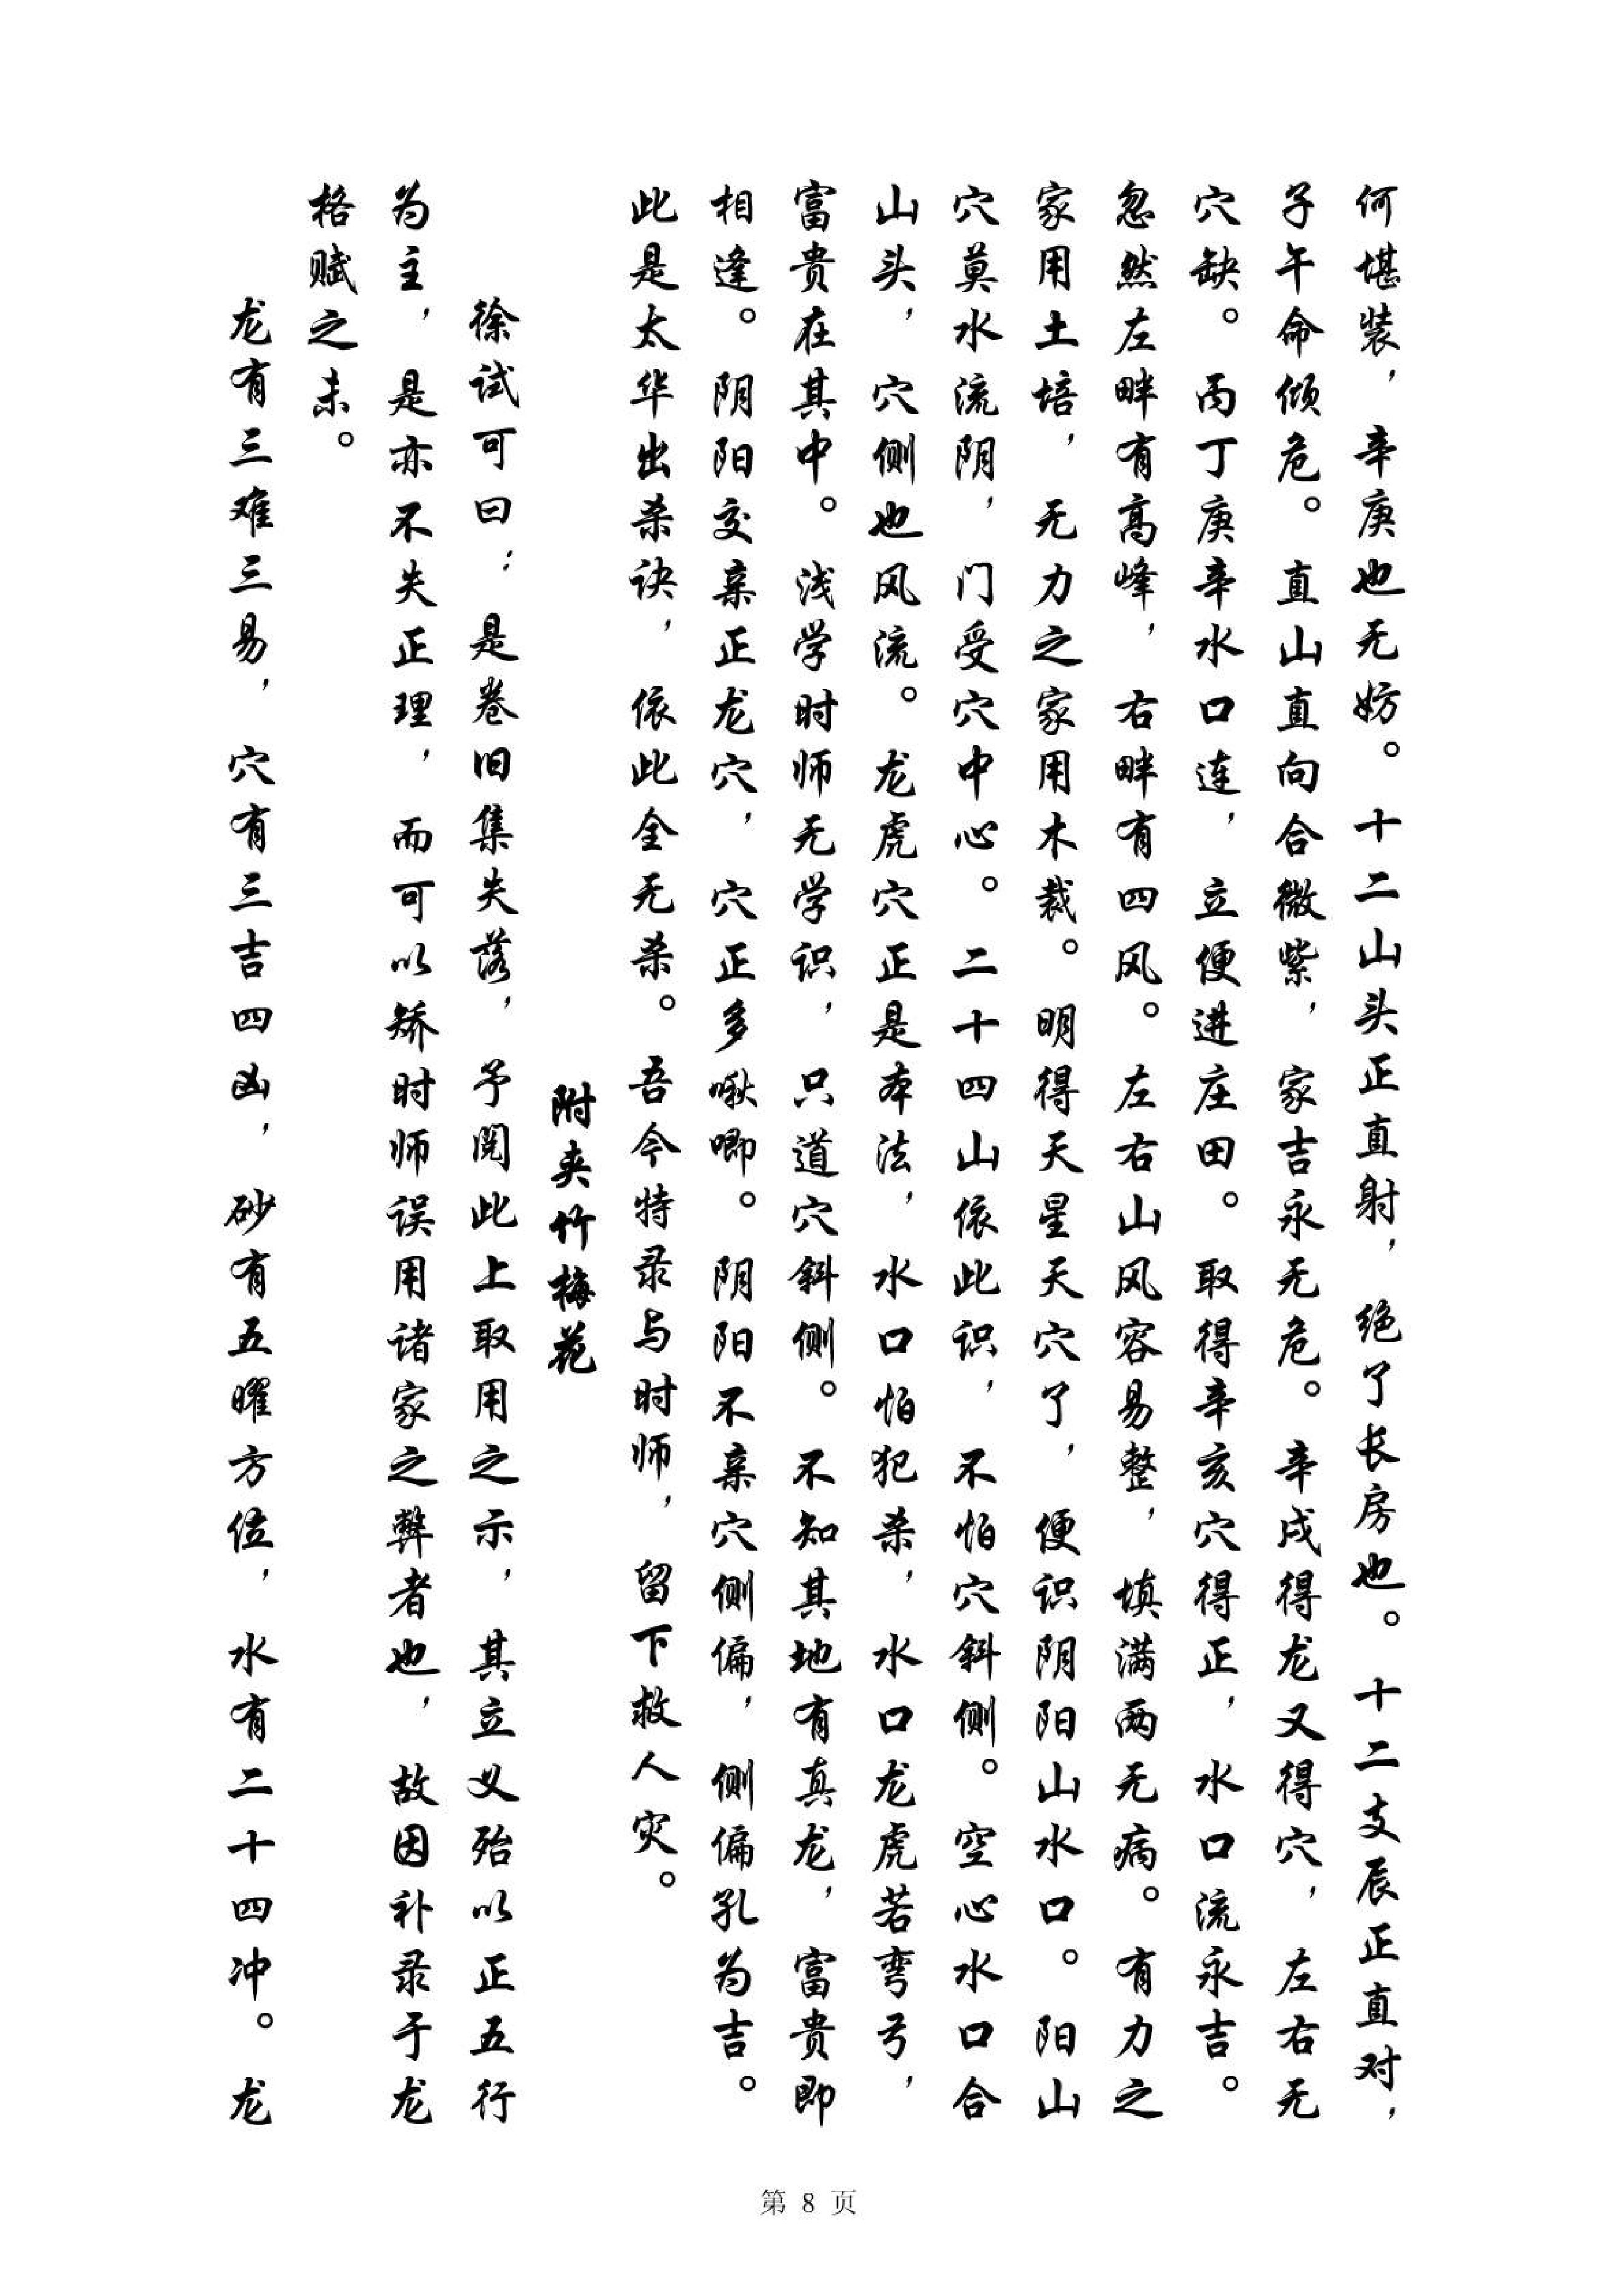 何堪装，辛庚也无妨。十二山头正直射，绝了长房也。十二支辰正直对，
子午命倾危。直山直向合微紫，家吉永无危。辛戌得龙又得穴，左右无
穴缺。丙丁庚辛水口连，立便进庄田。取得辛亥穴得正，水口流永吉。
忽然左畔有高峰，右畔有四风。左右山风容易整，填满两无病。有力之
家用土培，无力之家用木裁。明得天星天穴了，便识阴阳山水口。阳山
穴莫水流阴，门受穴中心。二十四山依此识，不怕穴斜侧。空心水口合
山头，穴侧也风流。龙虎穴正是本法，水口怕犯杀，水口龙虎若弯弓，
富贵在其中。浅学时师无学识，只道穴斜侧。不知其地有真龙，富贵即
相逢。阴阳交亲正龙穴，穴正多啾唧。阴阳不亲穴侧偏，侧偏孔为吉。
此是太华出杀诀，依此全无杀。吾今特录与时师，留下救人灾。
附夹竹梅花
徐试可曰：是卷旧集失落，予阅此上取用之示，其立义殆以正五行
为主，是亦不失正理，而可以矫时师误用诸家之弊者也，故因补录于龙
格赋之末。
龙有三难三易，穴有三吉四凶，砂有五曜方位，水有二十四冲。龙
第 8 页